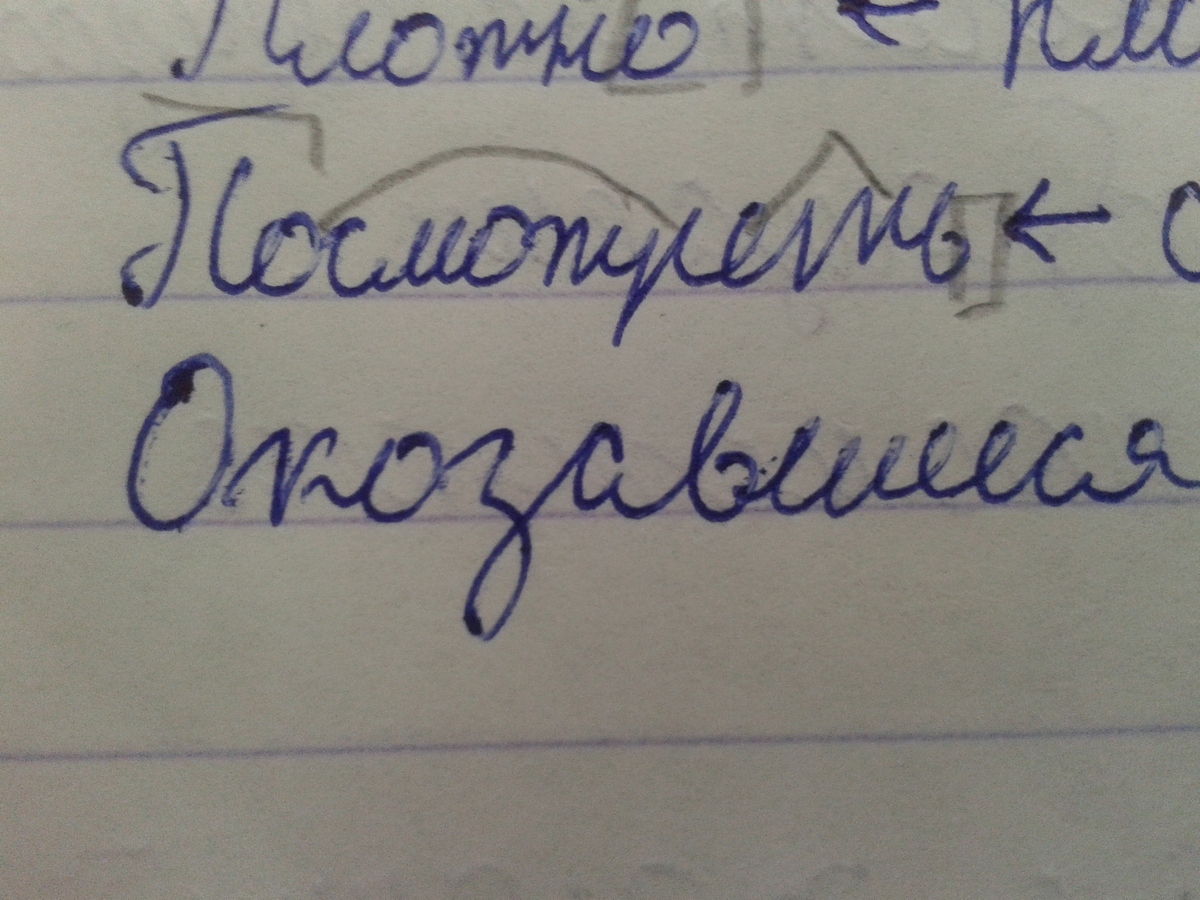 Плотно ← пл
Посмотреть ← с
Окозавшиеся